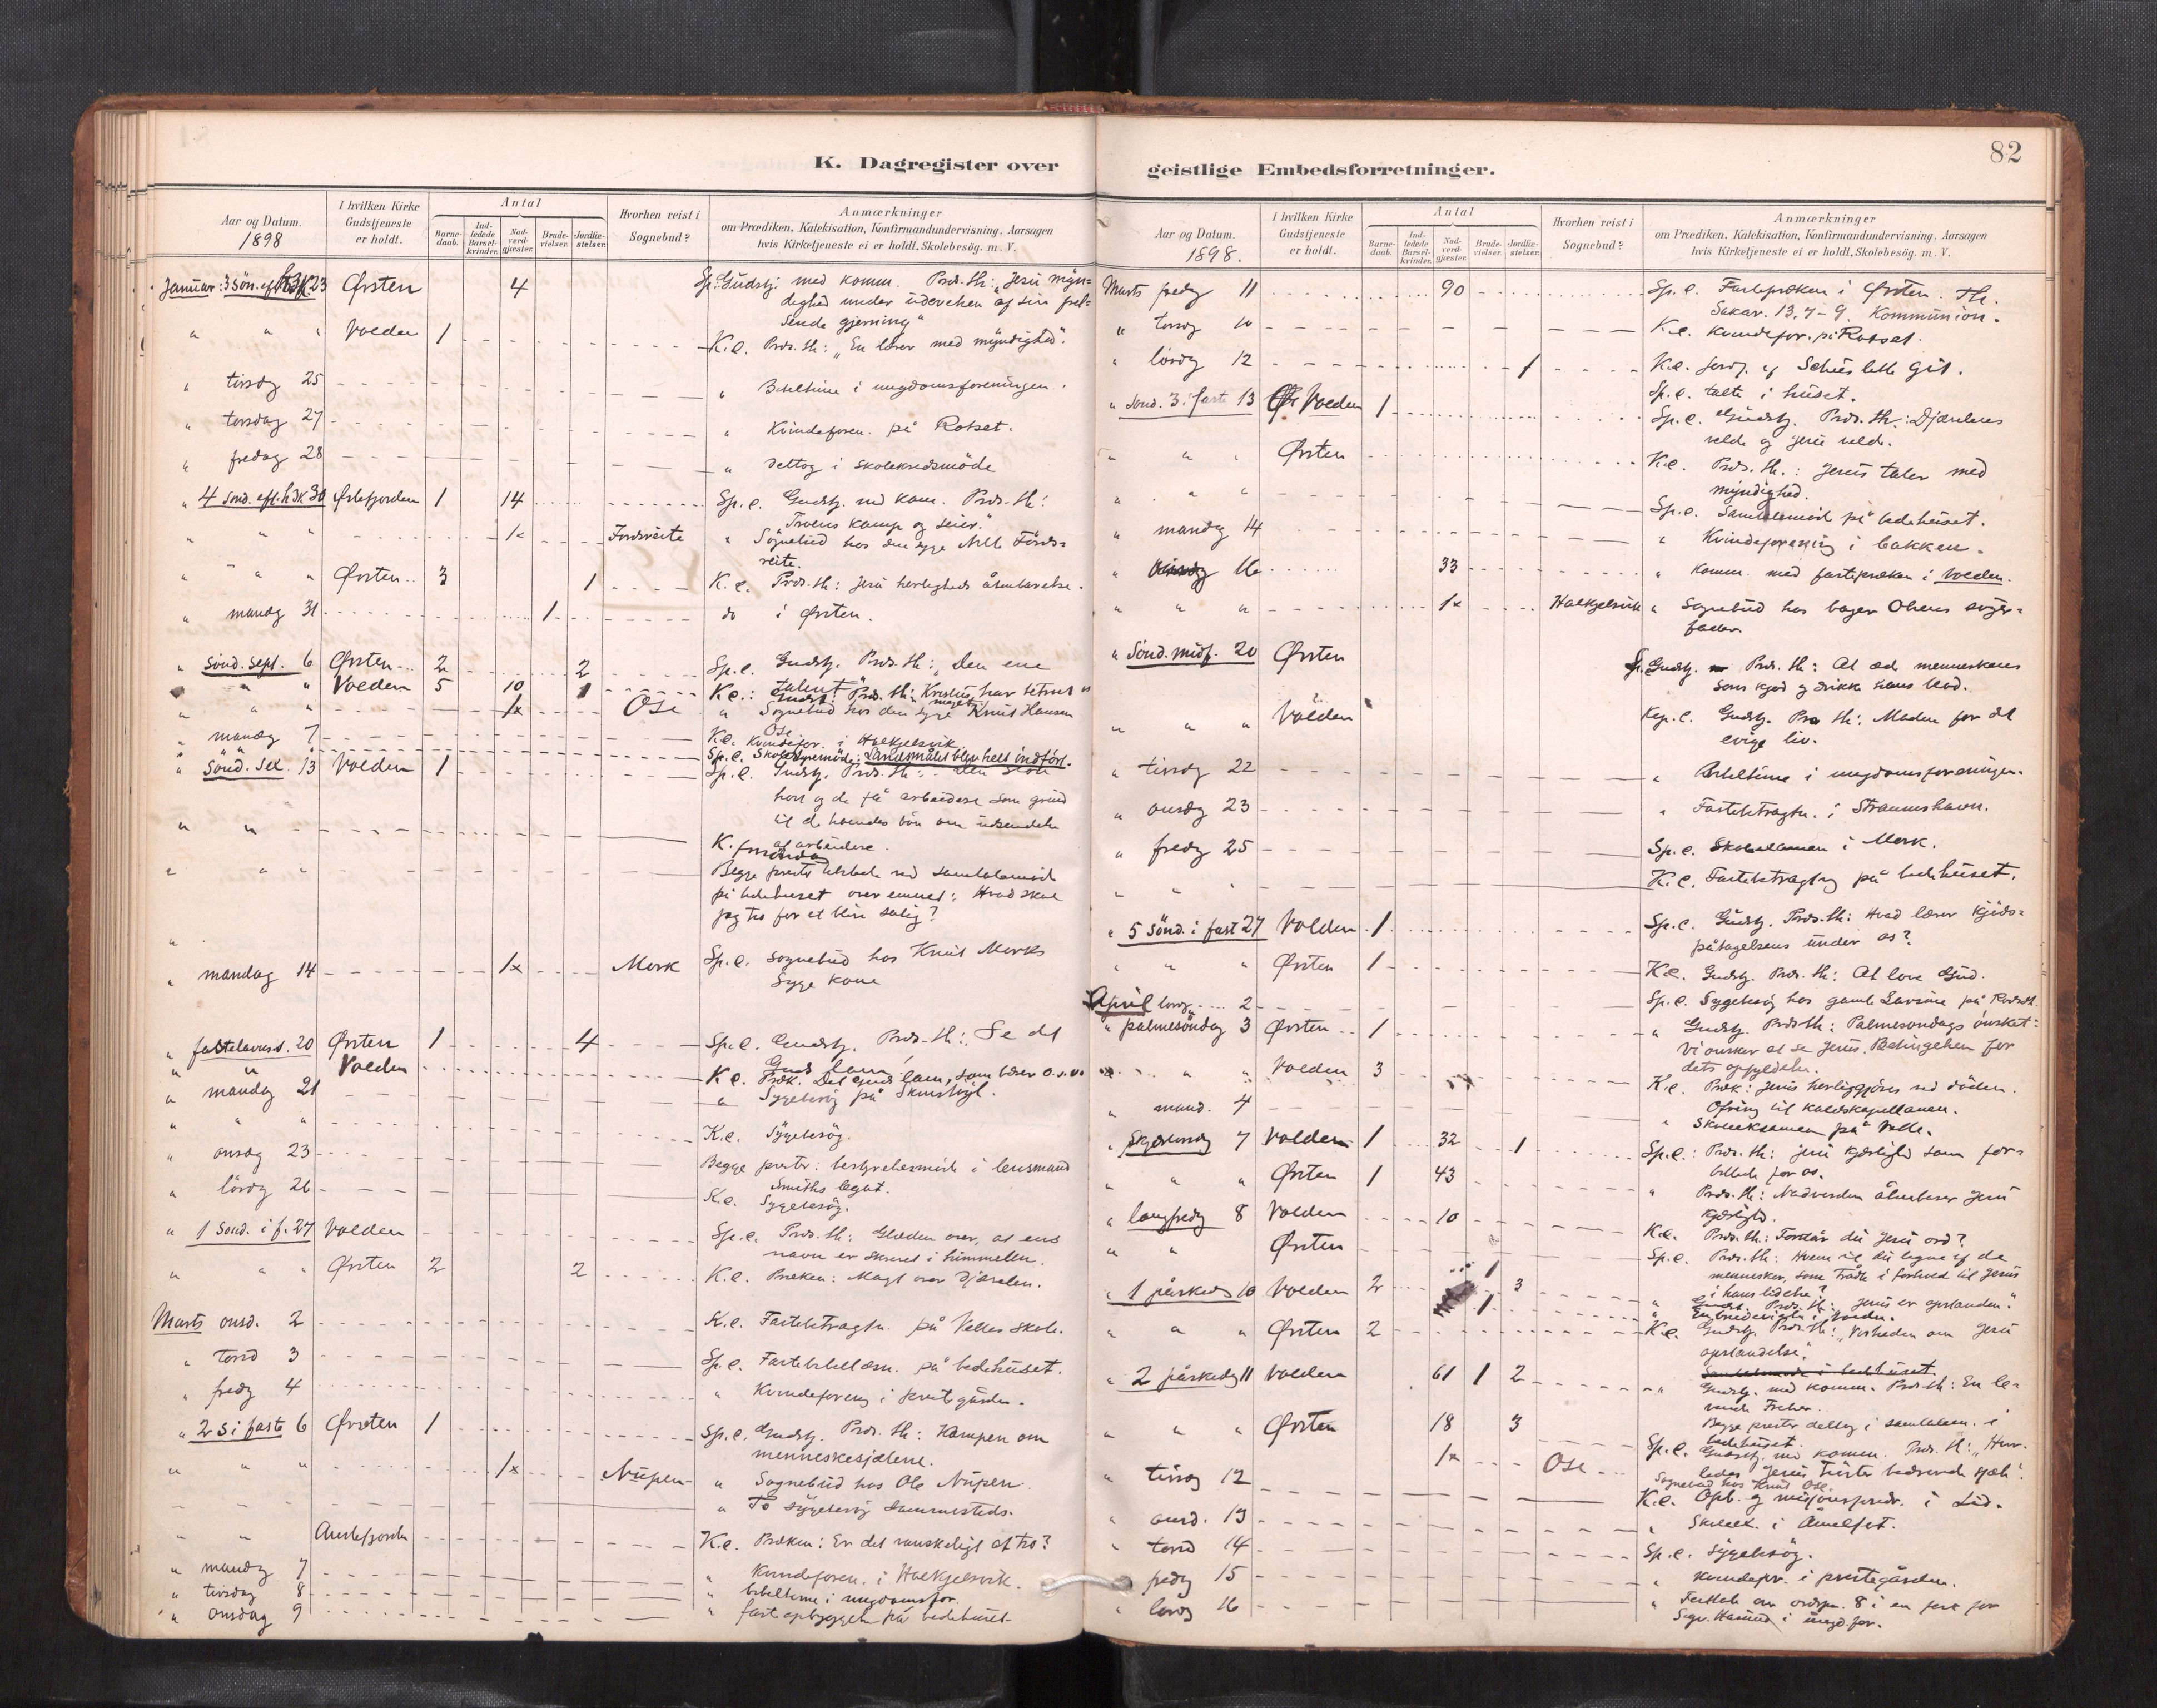 82
K. Dagregister over geistlige Embedsforretninger.
Aar og Datum. 1898
I hvilken Kirke Gudstjeneste er holdt.
Antal
Barne-daab.
Ind-ledede Barsel-kvinder.
Nad-verd-gjæster.
Brude-vielser.
Jordfæ-stelser.
Hvorhen reist i Sognebud?
Anmærkninger
om Prædiken, Katekisation, Konfirmandundervisning, Aarsagen
hvis Kirketjeneste ei er holdt, Skolebesög. m. V.
Januar: 3 sön. eft. h3k. 23 Örsten 4 Sp. Gudstj. med komm. Præd. th: "Jesu myn-
dighed under udøvelsen af sin frel-
sende gjerning"
" " " Volden 1 K.c. Præd. th: "En lærer med myndighed".
" tirsdg 25 " Bibeltime i ungdomsforeningen.
" torsdag 27 " Kvindeforen. på Rotset.
" fredag 28 " deltog i skolekredsmöde
" 4 Sönd. eft. h3k 30 Örstefjorden 1 14 Sp. c. Gudstj. med kom. Præd. th:
"Troens kamp og seier."
" " " 1x " Sognebud hos den syge
" " " Örsten 3 1 K. c. Præd. th: Jesu herligheds åbenbarelse.
" mandg 31 1 do i Örsten.
" Sönd. Sept. 6 Örsten 2 2 Sp. c. Gudstj. Præd. th: "Den ene
talent"
" " " Volden 5 10 1 K.c.: Gudst: Præd. th: Kristus har betroet os
meget.
" " " 1x Ose " Sognebud hos den syge Knut Hansen
Ose
" mandg 7 K.c. Kvindefor. i Halkjelsvik
Sp. c. : Landsmålet blev helt indført.
" Sönd. Sex. 13 Volden 1 Sp. c. Gudstj. Præd. th: - Den store
höst og de få arbeidere som grund
til de troendes bön om udsendelse
af arbeidere.
" " " Begge prester tilstede ved samtalemöde
på bedehuset over emnet: Hvad skal
jeg tro for at blive salig?
" mandag 14 1x Mork Sp. c. Sognebud hos Knut Morks
syge kone
" fastelavnss. 20 Örsten 1 4 Sp. c. Gudstj. Præd. th: Se det
Guds lam
" " Volden K c. Præk. Det Guds lam, som bærer o.s.v.
" mandg 21 " Sygebesög på
" " " K.c. Sygebesög.
" onsdg 23 Begge prester: bestyrelsesmöde i lensmand
Smiths legat.
" lördg 26 K.c. Sygebesög.
" 1 Sönd. i f. 27 Volden Sp. c. Præd. th: Glæden over, at ens
navn er skrevet i himmelen.
" " " Örsten 2 2 K.c. Præken: Magt over djævelen.
Marts onsd. 2 K.c. Fastebetragtn. på Velles skole.
" torsd 3 Sp. c. Fastebibellæsn. på bedehuset.
" fredg 4 " Kvindeforeng i
" 2 S i faste 6 Örsten 1 Sp. c. Gudstj. Præd. th: Kampen om
menneskesjælene.
" " " 1x Nupen " Sognebud hos Ole Nupen.
" To sygebesög sammesteds.
" " K.c. Præken: Er det vanskeligt at tro?
" mandg 7 " Kvindeforen. i Halkjelsvik.
" tirsdag 8 " bibeltime i ungdomsfor.
" onsdag 9 " fast opbyggelse på bedehuset
Aar og Datum. 1898.
I hvilken Kirke Gudstjeneste er holdt.
Antal
Barne-daab.
Ind-ledede Barsel-kvinder.
Nad-verd-gjæster.
Brude-vielser.
Jordfæ-stelser.
Hvorhen reist i Sognebud?
Anmærkninger
om Prædiken, Katekisation, Konfirmandundervisning, Aarsagen
hvis Kirketjeneste ei er holdt, Skolebesög. m. V.
Marts fredg 11 90 Sp. c. Fastepræken i Örsten. Th.
Sakar. 13, 7-9. Kommunion.
" torsdg 10 K.c. Kvindefor. på Rotset.
" lördg 12 1 K.c. Jordf. af
Sp. c. talte i huset.
" sönd. 3 i faste 13 Volden 1 Sp. c. Gudstj. Præd. th: Djævelens
velde og Jesu velde.
" " " Örsten K.c. Præd. th.: Jesus taler med
myndighed.
" " " Sp. c. Samtalemöde på bedehuset.
" mandag 14 " Kvindeforening i bakken.
" 16 33 " Komm. med fastepræken i Volden.
" " " 1x Halkjelsvik " Sognebud hos bager Olsens sviger-
fader.
" Sönd. midf. 20 Örsten Sp. Gudstj. Præd. th: At æde menneskens
söns kjöd og drikke hans blod.
" " " Volden Kap. c. Gudstj. Præ th: Maden for det
evige liv.
" tirsdg 22 " Bibeltime i ungdomsforeningen.
" onsdg 23 " Fastebetragtn. i Straumshavn.
" fredg 25 Sp. c. Skoleeksamen i Mork.
" " " K.c. Fastebetragtng på bedehuset.
" 5 Sönd. i fast 27 Volden 1 Sp. c. Gudstj. Præd. th: Hvad lærer kjöds-
påtagelsens under os?
" " " Örsten 1 K.c. Gudstj. Præd. th: At love Gud.
April lördg 2 Sp. c. Sygebesög hos gamle
" palmesöndag 3 Örsten 1 " Gudstj. Præd th: Palmesöndags önsket:
Vi önsker at se Jesus. Betingelsen for
dets opfyldelse.
" " " Volden 3 K.c. Præk: Jesus herliggjöres ved döden.
Ofring til kaldskapellanen.
" mand. 4 " Skoleeksamen på Velle.
" Skjærtorsdg 7 Volden 1 32 1 Sp. c.: Præd. th: Jesu kjærlighed som for-
billede for os.
" " " Örsten 1 43 " Præd. th: Nadverden åbenbarer Jesu
kjærlighed.
" langfredg 8 Volden 10 K.c. Præd. th: Forstår du Jesu ord?
" " Örsten Sp. c. Præd. th: Hvem vil du ligne af de
mennesker, som trådte i forhold til Jesus
i hans lidelse?
" 1 påskedg 10 Volden 2 1 3 " Gudst. Præd. th: "Jesus er opstanden."
1 " En brudevigsel i Volden.
" " " Örsten 2 K.c. Gudstj. Præd th: "Visheden om Jesu
opstandelse."
" 2 påskedg 11 Volden 61 1 2 " Gudstj. med komm. Præd. th: En le-
vende Frelser.
Begge prester deltog i samtalem. i
bedehuset.
" " " Örsten 18 3 Sp. c. Gudstj. med komm. Præd. th: "Hvor-
ledes Jesus tröster bedrövede sjæle".
1x Ose Sognebud hos Knut Ose.
" tirsdg 12 K.c. Opb. og misjonsforedr. i Lid.
" onsd. 13 " Skoleek. i
" torsd 14 Sp. c. Sygebesög.
" fredg 15 " Kvindefor. i prestegården.
" lördg 16 "
i ungd.for.